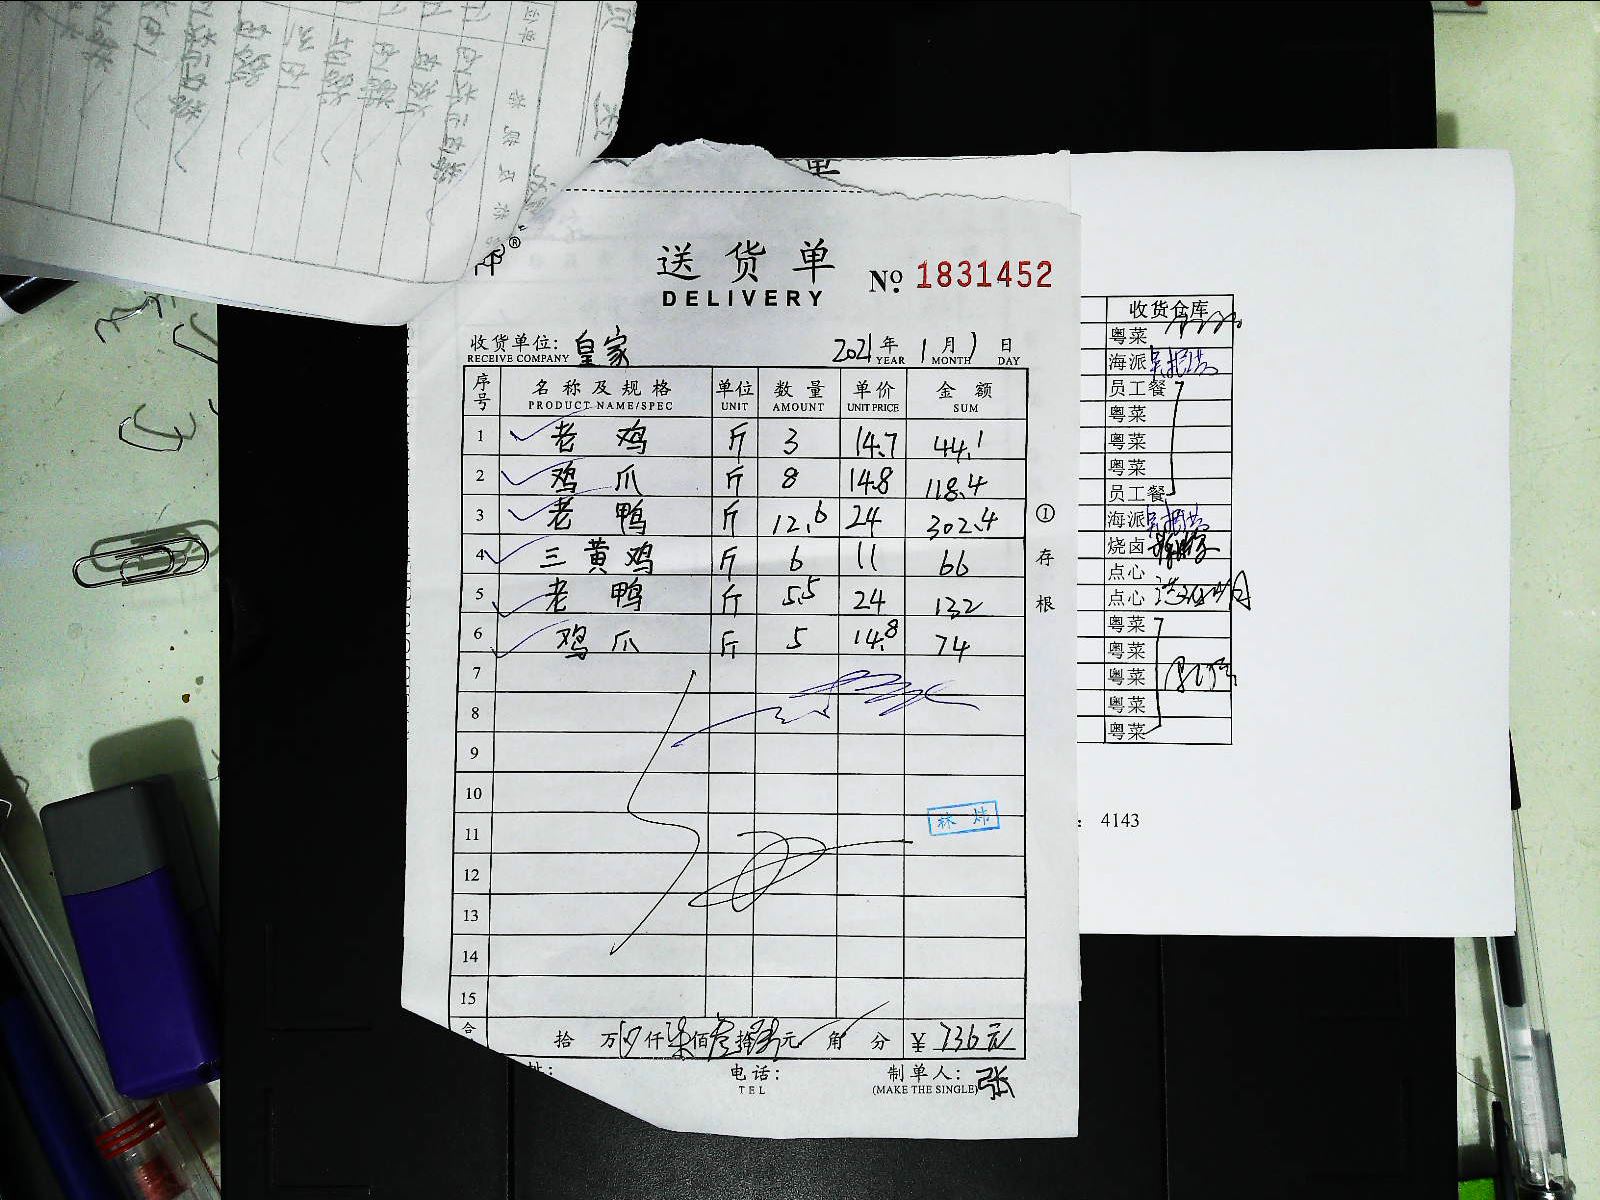 送货单
DELIVERY
№ 1831452
收货单位: 皇家
RECEIVE COMPANY
2021年 1月 1日
YEAR MONTH DAY
序号 名称及规格 单位 数量 单价 金额
PRODUCT NAME/SPEC UNIT AMOUNT UNIT PRICE SUM
1 老鸡 斤 3 14.7 44.1
2 鸡爪 斤 8 14.8 118.4
3 老鸭 斤 12.6 24 302.4
4 三黄鸡 斤 6 11 66
5 老鸭 斤 5.5 24 132
6 鸡爪 斤 5 14.8 74
7
8
9
10
11
12
13
14
15
林炜
合 拾 万 仟 柒佰叁拾陆元 角 分 ¥ 736元
址:
电话:
TEL
制单人: 张
(MAKE THE SINGLE)
①存根
收货仓库
粤菜
海派
员工餐
粤菜
粤菜
粤菜
员工餐
海派
烧卤
点心
点心
粤菜
粤菜
粤菜
粤菜
粤菜
: 4143